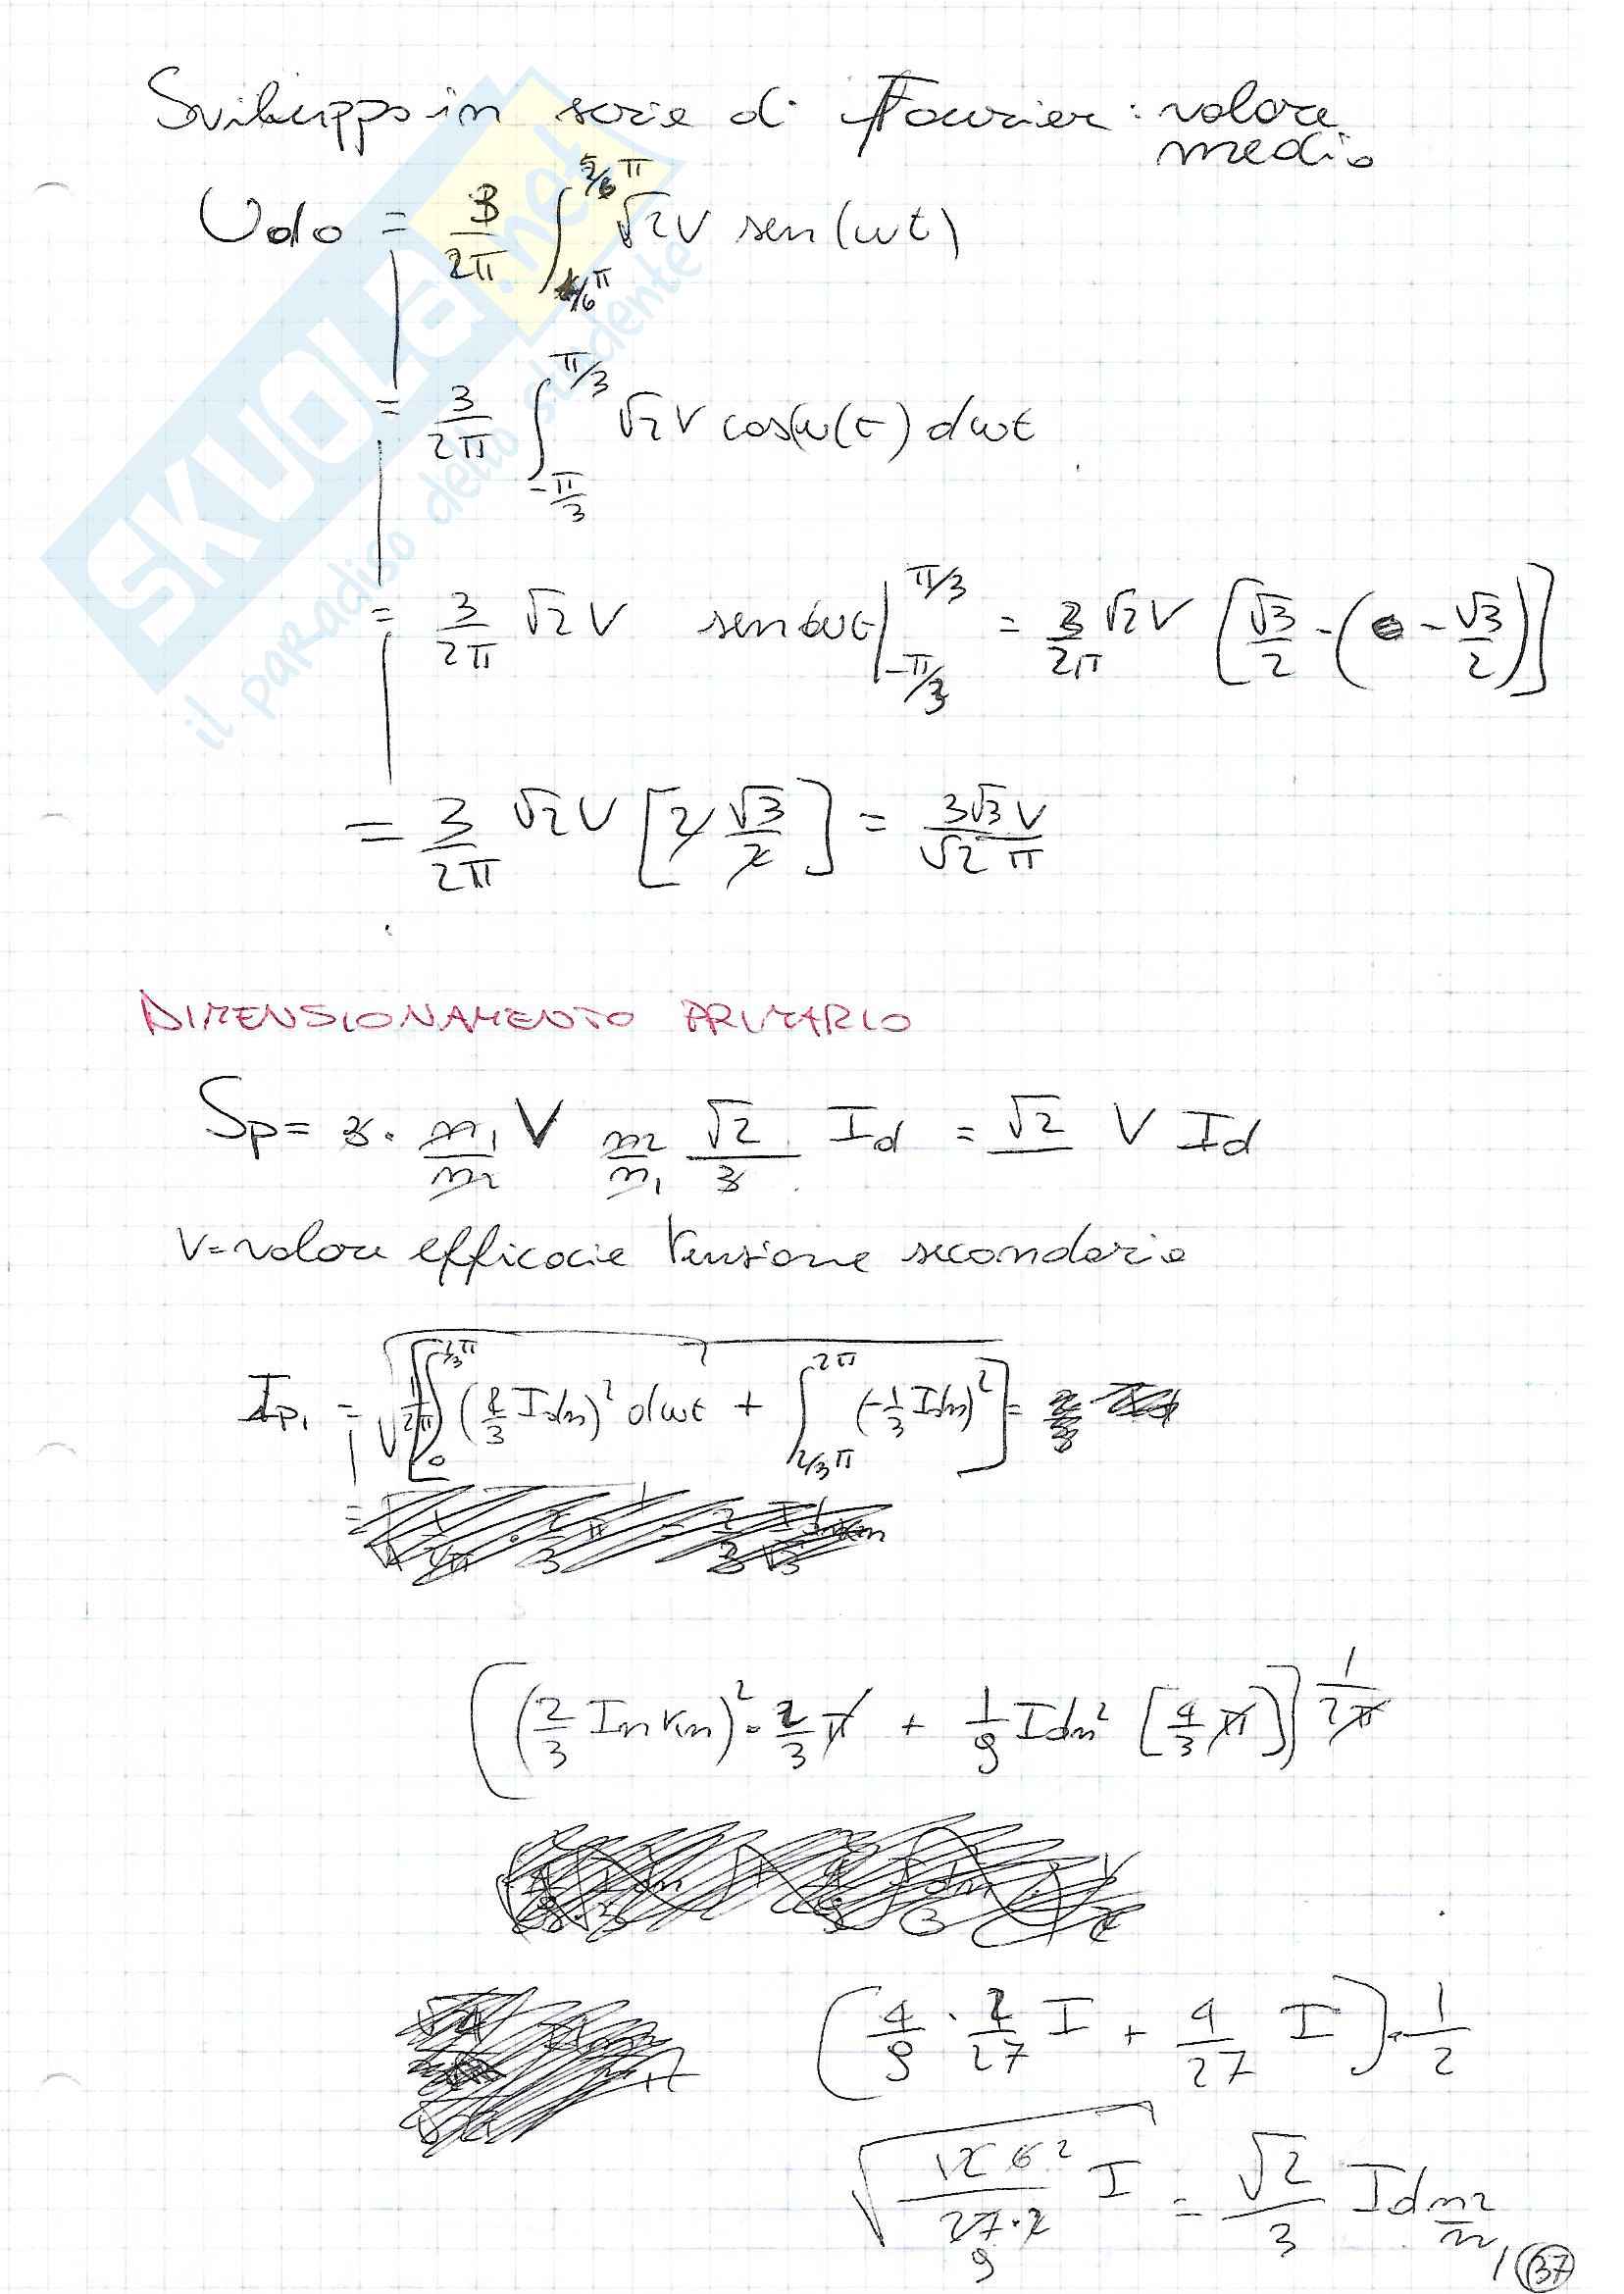 Sviluppo in serie di Fourier: valore
medio
Udo = 3/2π ∫_{1/6 π}^{5/6 π} √2 V sen(ωt)
= 3/2π ∫_{-π/3}^{π/3} √2 V cos(ω(t) dωt
= 3/2π √2 V senωt |_{-π/3}^{π/3} = 3/2π √2 V [√3/2 - (- √3/2)]
= 3/2π √2 V [2 √3/2] = 3√3 V / √2 π
DIMENSIONAMENTO PRIMARIO
Sp = 3 · n1/n2 V n2/n1 √2/3 Id = √2 V Id
V= valore efficacie tensione secondario
Ip1 = √ 1/2π [∫_0^{2/3π} (2/3 Idn)² dωt + ∫_{2/3π}^{2π} (-1/3 Idn)²] =
((2/3 In km)² · 2/3 π + 1/9 Idn² [4/3 π]) 1/2π
(4/9 · 2/27 I + 4/27 I) · 1/2
√ 12 6 2 / 27·2 9 I = √2/3 Id n2/n1
37
SKUOLA.net
il paradiso dello studente